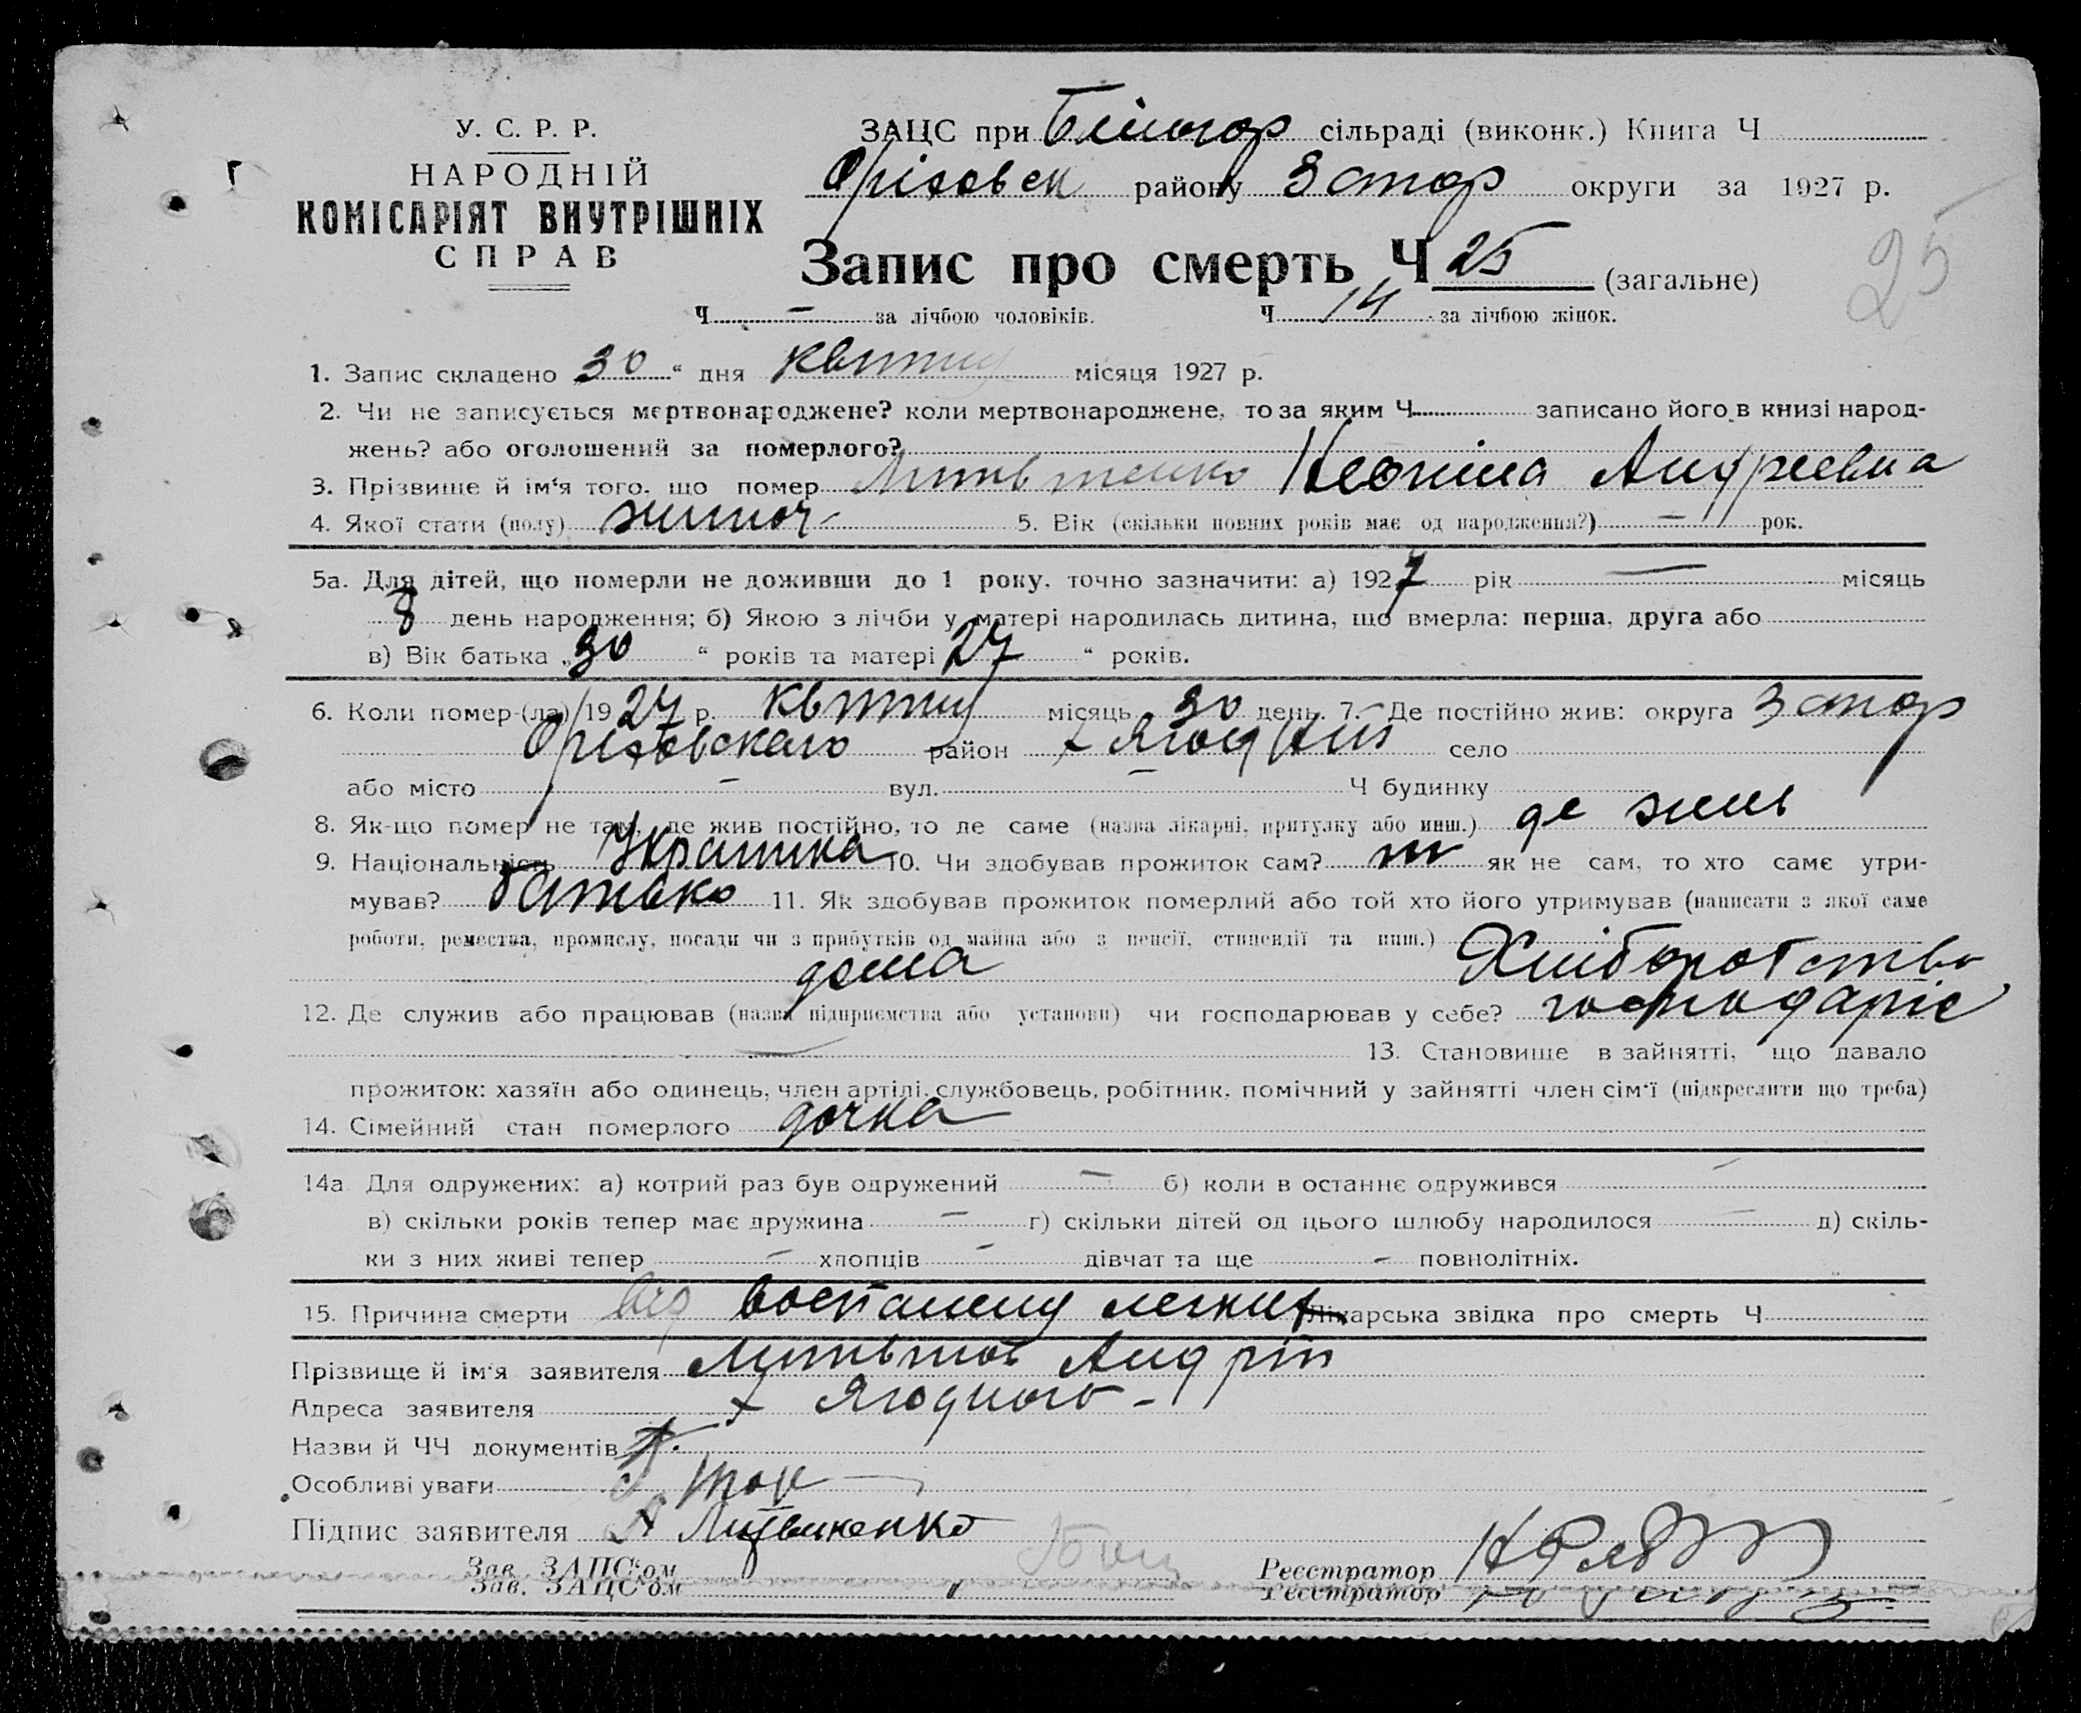 У. С. Р. Р.
НАРОДНІЙ
КОМІСАРІЯТ ВНУТРІШНІХ
СПРАВ
ЗАЦС при Білогор сільраді (виконк.) Книга Ч
Оріховск району Запор округи за 1927 р.
Запис про смерть Ч 25 (загальне)
25
Ч — за лічбою чоловіків. Ч 14 за лічбою жінок.
1. Запис складено 30 “ дня квітня місяця 1927 р.
2. Чи не записується мертвонароджене? коли мертвонароджене, то за яким Ч записано його в книзі народ-
жень? або оголошений за померлого?
3. Прізвище й ім‘я того, що помер Андреевна
4. Якої стати (полу) жиноч- 5. Вік (скільки повних років має од народження?) — рок.
5а. Для дітей, що померли не доживши до 1 року, точно зазначити: а) 1927 рік — місяць
8 день народження; б) Якою з лічби у матері народилась дитина, що вмерла: перша, друга або
в) Вік батька „30 “ років та матері 27 “ років.
6. Коли помер-(ла) 1927 р. квітня місяць 30 день. 7. Де постійно жив: округа Запор
Оріховскаго район х Ягодний село
або місто — вул. — Ч будинку
8. Як-що помер не там, де жив постійно, то де саме (назва лікарні, притулку або инш.) де жив
9. Національність Українка 10. Чи здобував прожиток сам? ні як не сам, то хто саме утри-
мував? батько 11. Як здобував прожиток померлий або той хто його утримував (написати з якої саме
роботи, ремества, промислу, посади чи з прибутків од майна або з пенсії, стипендії та инш.) Хліборобство
дома
12. Де служив або працював (назва підприємства або установи) чи господарював у себе? господаріє
— 13. Становище в зайнятті, що давало
прожиток: хазяїн або одинець, член артілі, службовець, робітник, помічний у зайнятті член сім‘ї (підкреслити що треба)
14. Сімейний стан померлого дочка
14а Для одружених: а) котрий раз був одружений — б) коли в останнє одружився —
в) скільки років тепер має дружина — г) скільки дітей од цього шлюбу народилося — д) скіль-
ки з них живі тепер — хлопців — дівчат та ще — повнолітніх.
15. Причина смерти від воспалену легких Лікарська звідка про смерть Ч
Прізвище й ім‘я заявителя Андрій
Адреса заявителя х Ягодного -
Назви й ЧЧ документів
Особливі уваги
Підпис заявителя А Литвиненко
Зав. ЗАПС‘ом Реєстратор
Зав. ЗАЦС‘ом Реєстратор